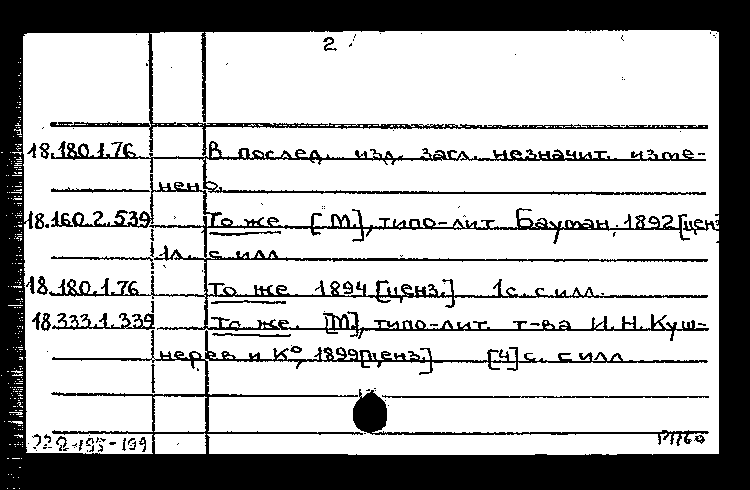 2
18.180.1.76 В послед. изд. загл. незначит. изме-
нено.
18.160.2.539 То же [М.], типо-лит. Бауман, 1892 [ценз
1л. с илл.
18.180.1.76 То же 1894 [ценз.] 1с. с илл.
18.333.1.339 То же. [М.], типо-лит. т-ва И.Н. Куш-
нерев и Кº, 1899 [ценз.] [4] с. с илл.